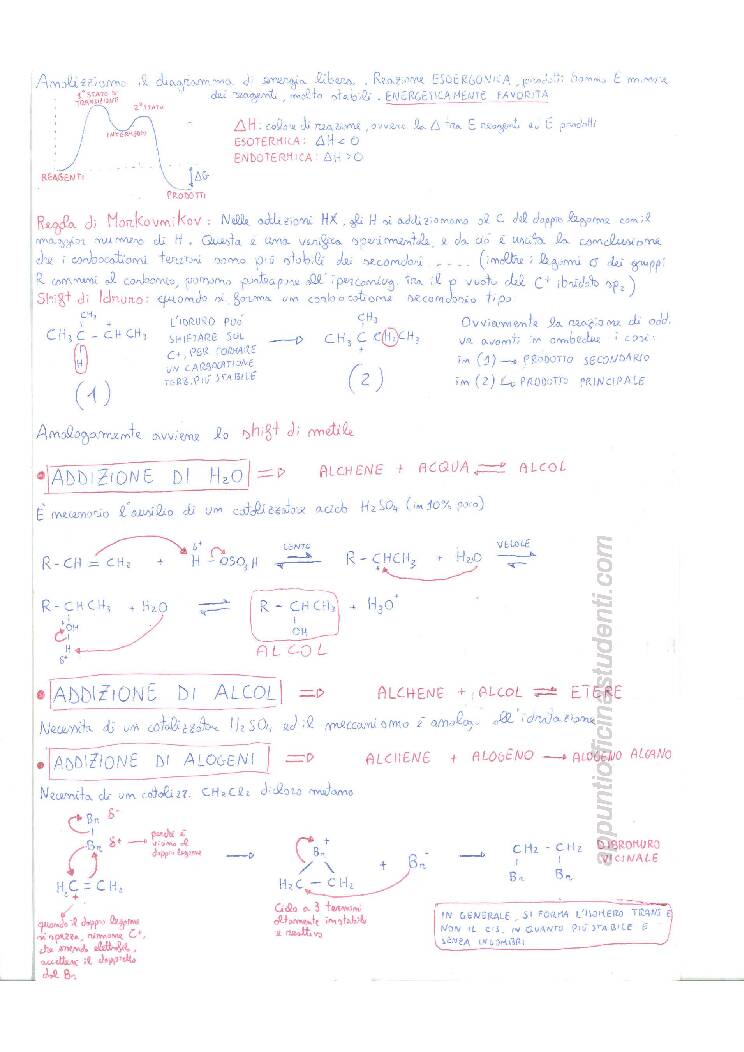 Analizziamo il diagramma di energia libera. Reazione ESOERGONICA, prodotti hanno E minore
dei reagenti, molto stabili. ENERGETICAMENTE FAVORITA
1° STATO DI
TRANSIZIONE
2° STATO
INTERMEDI
REAGENTI
ΔG
PRODOTTI
ΔH: calore di reazione, ovvero la Δ tra E reagenti ed E prodotti
ESOTERMICA: ΔH < O
ENDOTERMICA: ΔH > O
Regola di Markovnikov: Nelle addizioni HX, gli H si addizionano al C del doppio legame con il
maggior numero di H. Questa è una verifica sperimentale, e da ciò è uscita la conclusione
che i carbocationi terziari sono più stabili dei secondari .... (inoltre i legami σ dei gruppi
R connessi al carbonio, possono partecipare all'iperconiug. tra il p vuoto del C+ ibridato sp2)
Shift di Idruro: quando si forma un carbocatione secondario tipo
CH3
CH3 C - CH CH3
+
H
(1)
L'IDRURO PUÒ
SHIFTARE SUL
C+, PER FORMARE
UN CARBOCATIONE
TERZ. PIÙ STABILE
CH3
CH3 C CH2 CH3
+
(2)
Ovviamente la reazione di add.
va avanti in ambedue i casi:
in (1) → PRODOTTO SECONDARIO
in (2) ↳ PRODOTTO PRINCIPALE
Analogamente avviene lo shift di metile
• ADDIZIONE DI H2O ⇒ ALCHENE + ACQUA ⇌ ALCOL
È necessario l'ausilio di un catalizzatore acido H2SO4 (in 10% peso)
R - CH = CH2 + H δ+ - OSO3H ⇌ LENTO R - CHCH3 + + H2O ⇌ VELOCE
R - CH CH3 + H2O ⇌ R - CH CH3 + H3O+
+OH
OH
H
δ+
ALCOL
• ADDIZIONE DI ALCOL ⇒ ALCHENE + ALCOL ⇌ ETERE
Necessita di un catalizzatore H2SO4 ed il meccanismo è analog. all'idratazione
• ADDIZIONE DI ALOGENI ⇒ ALCHENE + ALOGENO → ALOGENO ALCANO
Necessita di un catalizz. CH2Cl2 dicloro metano
Br δ-
Br δ+ → perché è
vicino al
doppio legame
H2C = CH2
→
Br +
H2C - CH2
+ Br-
→
CH2 - CH2
Br Br
DIBROMURO
VICINALE
Quando il doppio legame
si spezza, rimane C+,
che essendo elettrofilo,
accetterà il doppietto
dal Br
Ciclo a 3 termini
altamente instabile
e reattivo
IN GENERALE, SI FORMA L'ISOMERO TRANS E
NON IL CIS, IN QUANTO PIÙ STABILE E
SENZA INGOMBRI
appuntiofficinastudenti.com